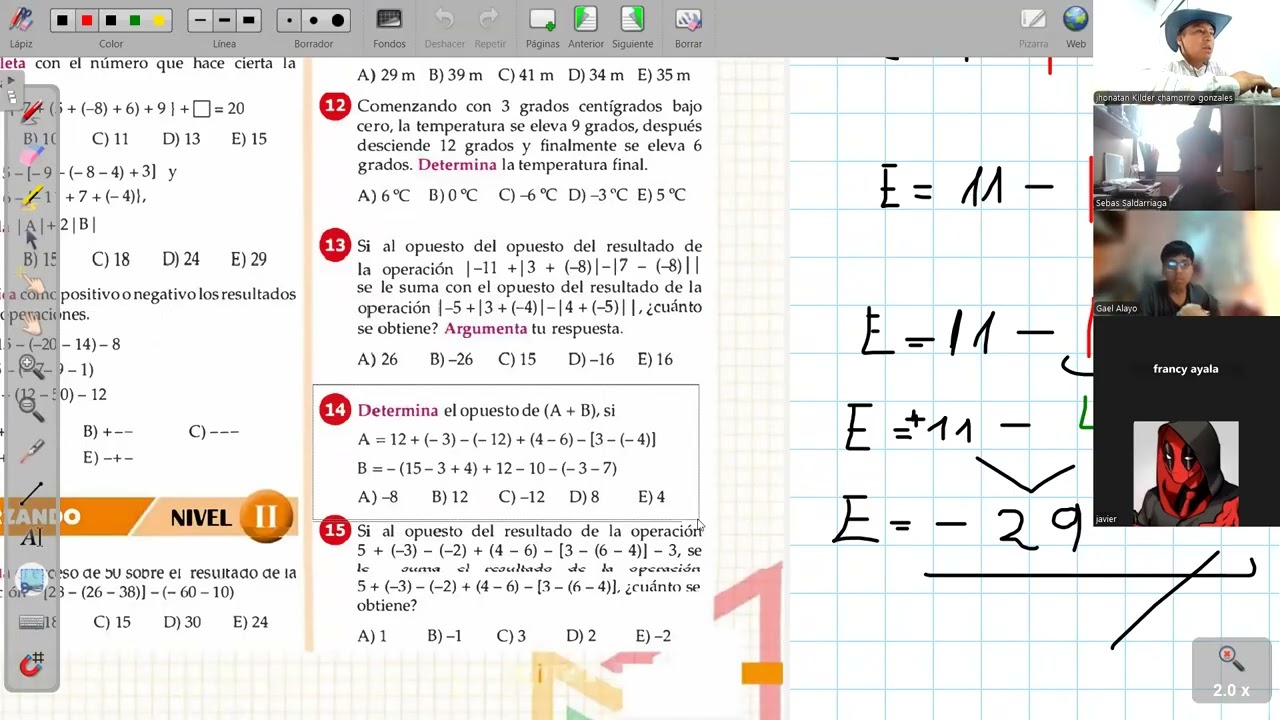 Lápiz
Color
Línea
Borrador
Fondos
Deshacer
Repetir
Páginas
Anterior
Siguiente
Borrar
Pizarra
Web
leta con el número que hace cierta la
+ (-8) + 6) + 9 } + □ = 20
B) 10 C) 11 D) 13 E) 15
- [- 9 - (- 8 – 4) + 3] y
+ 7 + (- 4)},
|A| + 2|B|
B) 15 C) 18 D) 24 E) 29
como positivo o negativo los resultados
operaciones.
(–20 – 14) – 8
9 – 1)
(12 – 50) – 12
B) + – – C) – – –
E) – + –
ZANDO NIVEL II
ceso de 50 sobre el resultado de la
- (26 – 38)] – (– 60 – 10)
18 C) 15 D) 30 E) 24
A) 29 m B) 39 m C) 41 m D) 34 m E) 35 m
12 Comenzando con 3 grados centígrados bajo
cero, la temperatura se eleva 9 grados, después
desciende 12 grados y finalmente se eleva 6
grados. Determina la temperatura final.
A) 6 ºC B) 0 ºC C) –6 ºC D) –3 ºC E) 5 ºC
13 Si al opuesto del opuesto del resultado de
la operación |–11 +|3 + (–8)|–|7 – (–8)||
se le suma con el opuesto del resultado de la
operación |–5 +|3 + (–4)|–|4 + (–5)||, ¿cuánto
se obtiene? Argumenta tu respuesta.
A) 26 B) –26 C) 15 D) –16 E) 16
14 Determina el opuesto de (A + B), si
A = 12 + (– 3) – (– 12) + (4 – 6) – [3 – (– 4)]
B = – (15 – 3 + 4) + 12 – 10 – (– 3 – 7)
A) –8 B) 12 C) –12 D) 8 E) 4
15 Si al opuesto del resultado de la operación
5 + (–3) – (–2) + (4 – 6) – [3 – (6 – 4)] – 3, se
le suma el resultado de la operación
5 + (–3) – (–2) + (4 – 6) – [3 – (6 – 4)], ¿cuánto se
obtiene?
A) 1 B) –1 C) 3 D) 2 E) –2
E = 11 –
E = 11 –
E = +11 –
E = – 29
jhonatan Kilder chamorro gonzales
Sebas Saldarriaga
Gael Alayo
francy ayala
javier
2.0 x